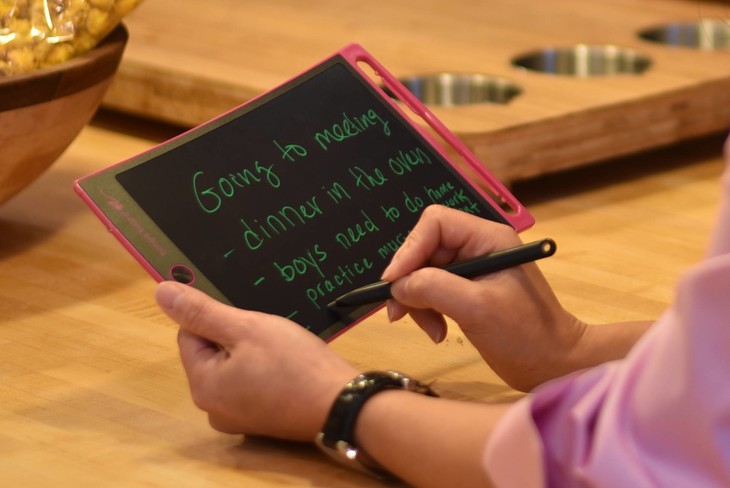 Going to meeting
- dinner in the oven
- boys need to do home work
- practice